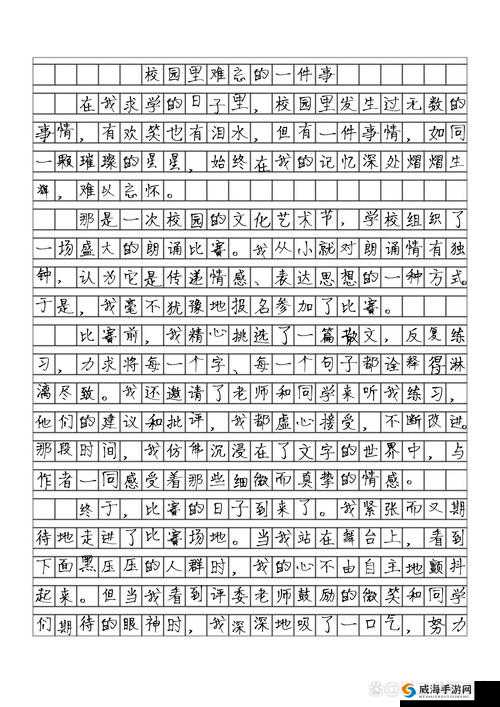 校园里难忘的一件事
在我求学的日子里，校园里发生过无数的
事情，有欢笑也有泪水，但有一件事情，如同
一颗璀璨的星星，始终在我的记忆深处熠熠生
辉，难以忘怀。
那是一次校园的文化艺术节，学校组织了
一场盛大的朗诵比赛。我从小就对朗诵情有独
钟，认为它是传递情感、表达思想的一种方式。
于是，我毫不犹豫地报名参加了比赛。
比赛前，我精心挑选了一篇散文，反复练
习，力求将每一个字、每一个句子都诠释得淋
漓尽致。我还邀请了老师和同学来听我练习，
他们的建议和批评，我都虚心接受，不断改进。
那段时间，我仿佛沉浸在了文字的世界中，与
作者一同感受着那些细微而真挚的情感。
终于，比赛的日子到来了。我紧张而又期
待地走进了比赛场地。当我站在舞台上，看到
下面黑压压的人群时，我的心不由自主地颤抖
起来。但当我看到评委老师鼓励的微笑和同学
们期待的眼神时，我深深地吸了一口气，努力
威海手游网